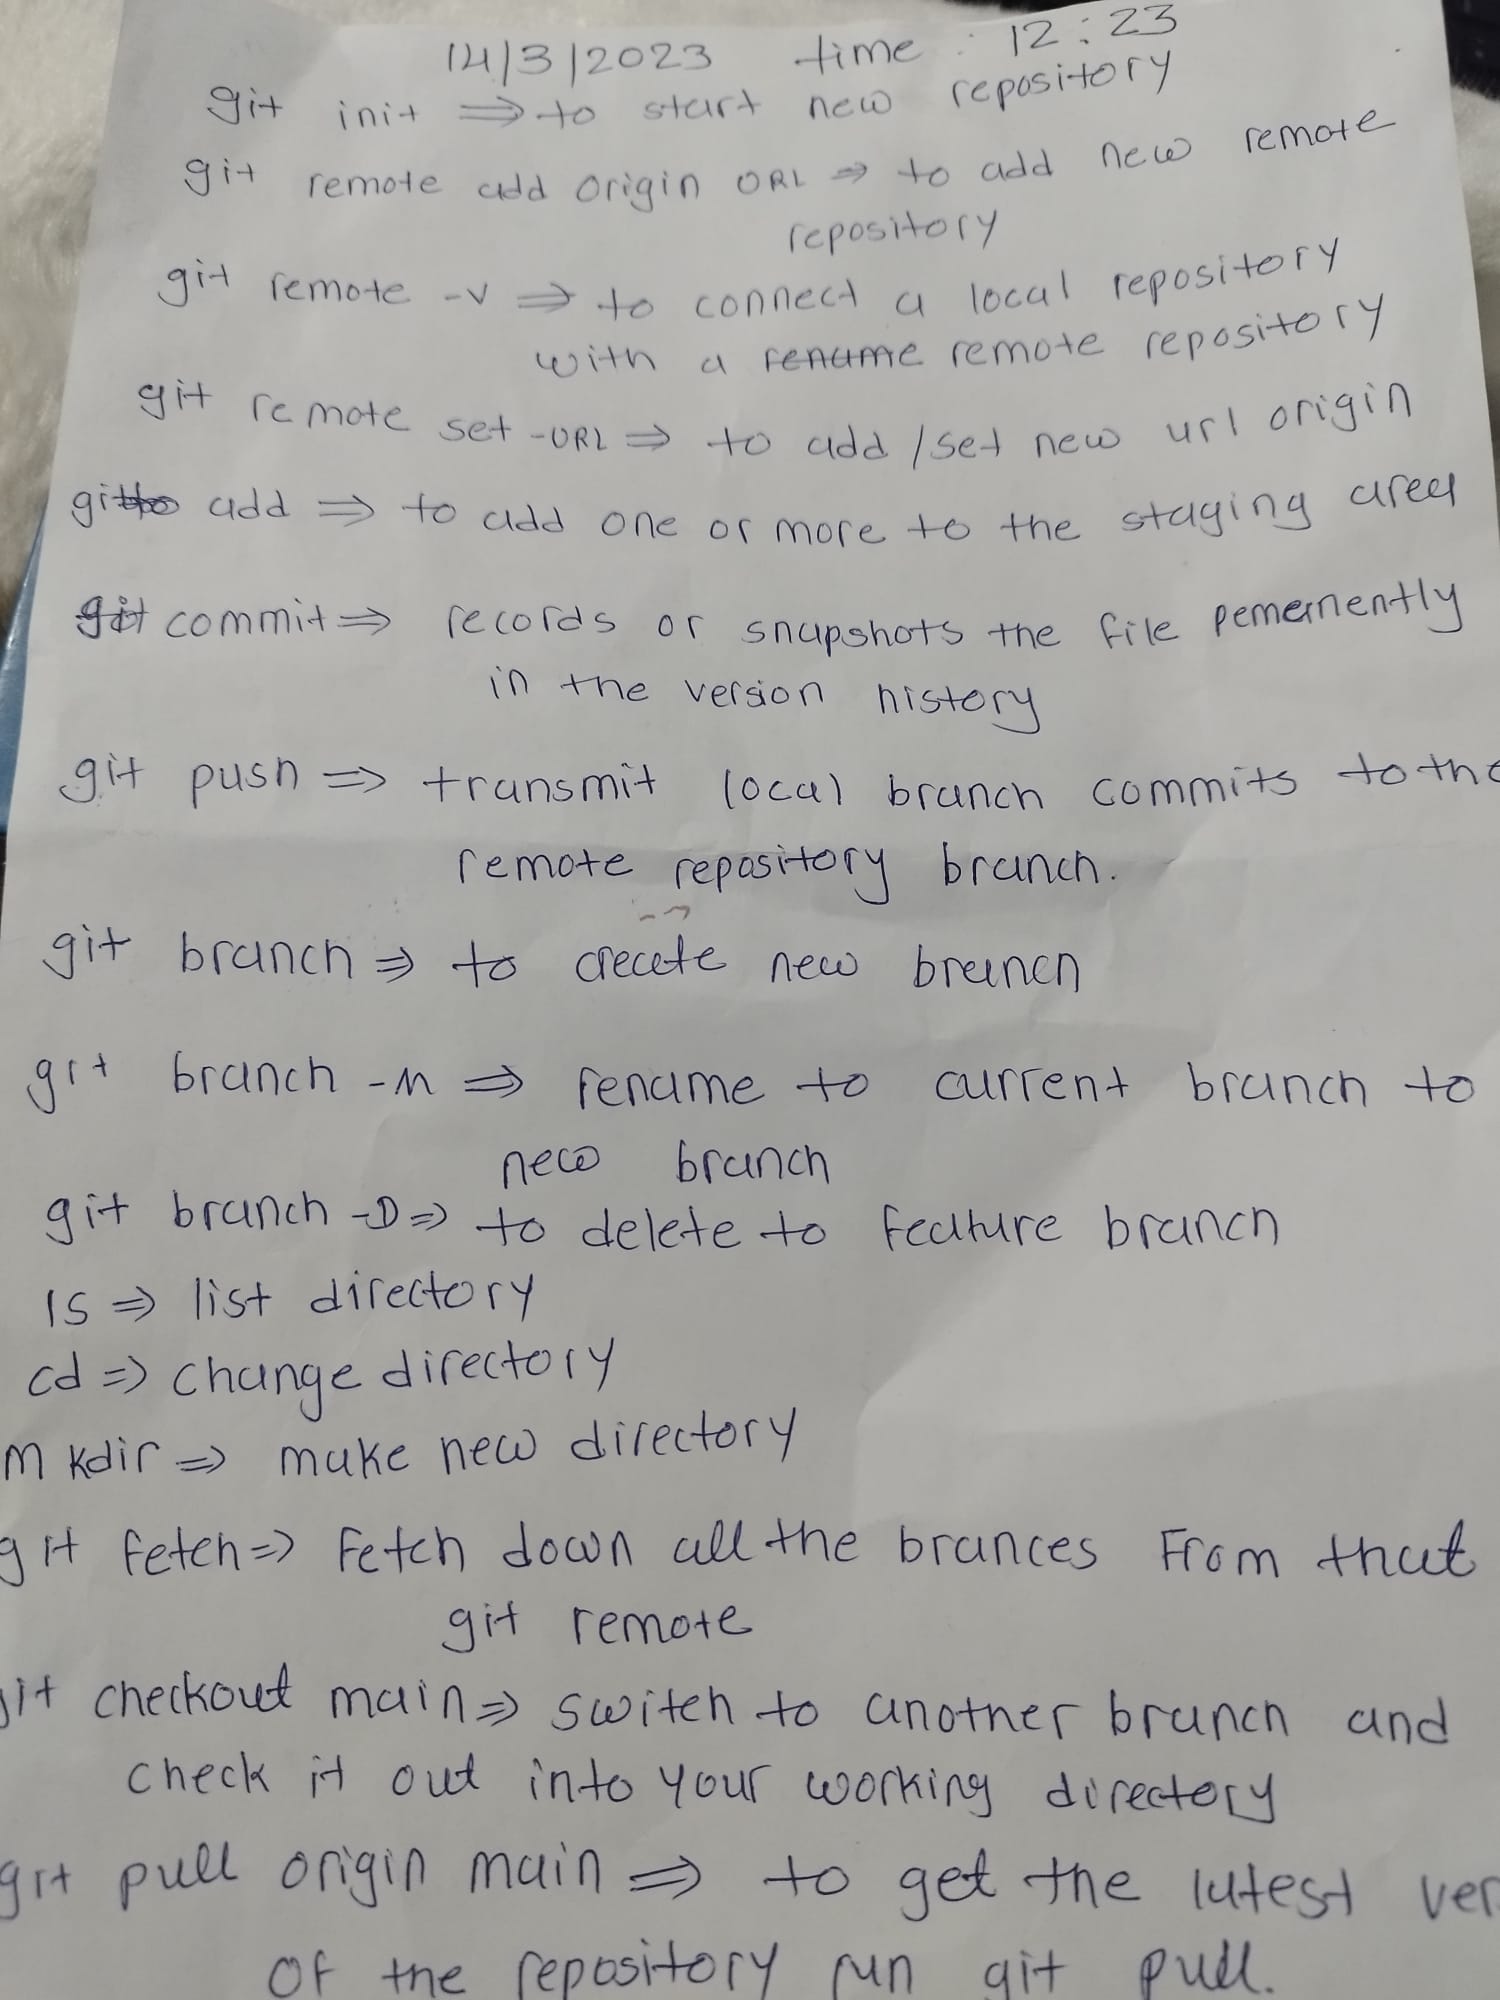 14/3/2023 time : 12:23
git init => to start new repository
git remote add origin URL => to add new remote
repository
git remote -v => to connect a local repository
with a rename remote repository
git remote set-URL => to add /set new url origin
git add => to add one or more to the staging area
git commit => records or snapshots the file pemernently
in the version history
git push => transmit local branch commits to the
remote repository branch.
git branch => to create new branch
git branch -M => rename to current branch to
new branch
git branch -D => to delete to feature branch
ls => list directory
cd => change directory
mkdir => make new directory
git fetch => Fetch down all the brances From that
git remote
git checkout main => switch to another branch and
check it out into your working directory
git pull origin main => to get the latest ver
of the repository run git pull.